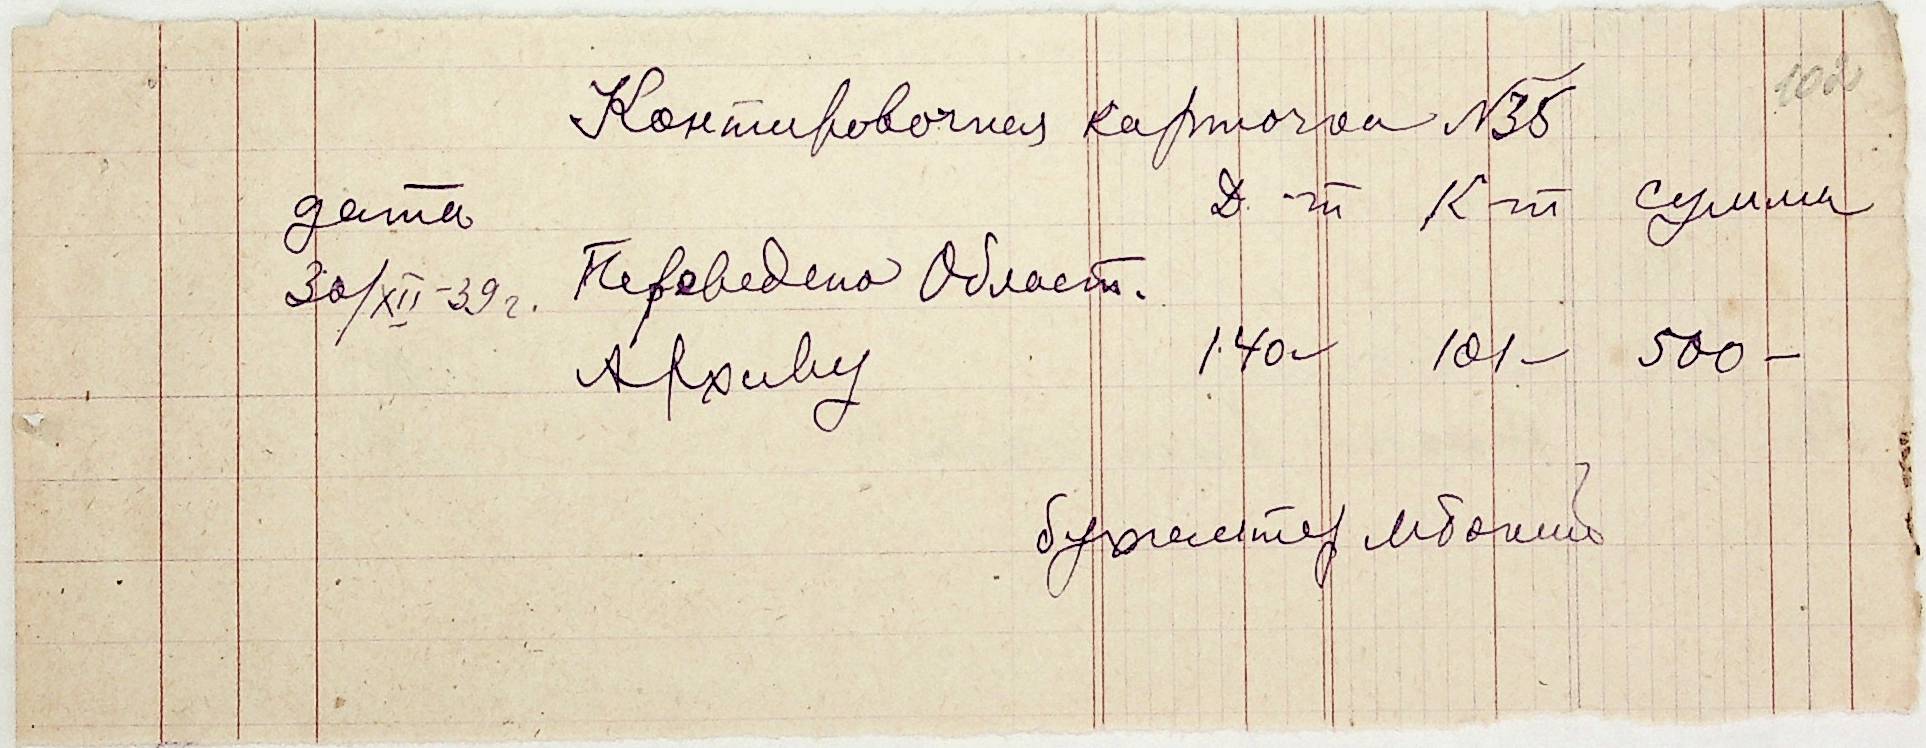 102
Контировочная карточка №35
дата Д-т К-т сумма
30/XII-39 г. Переведено Област.
Архиву 140- 101- 500-
бухгалтер